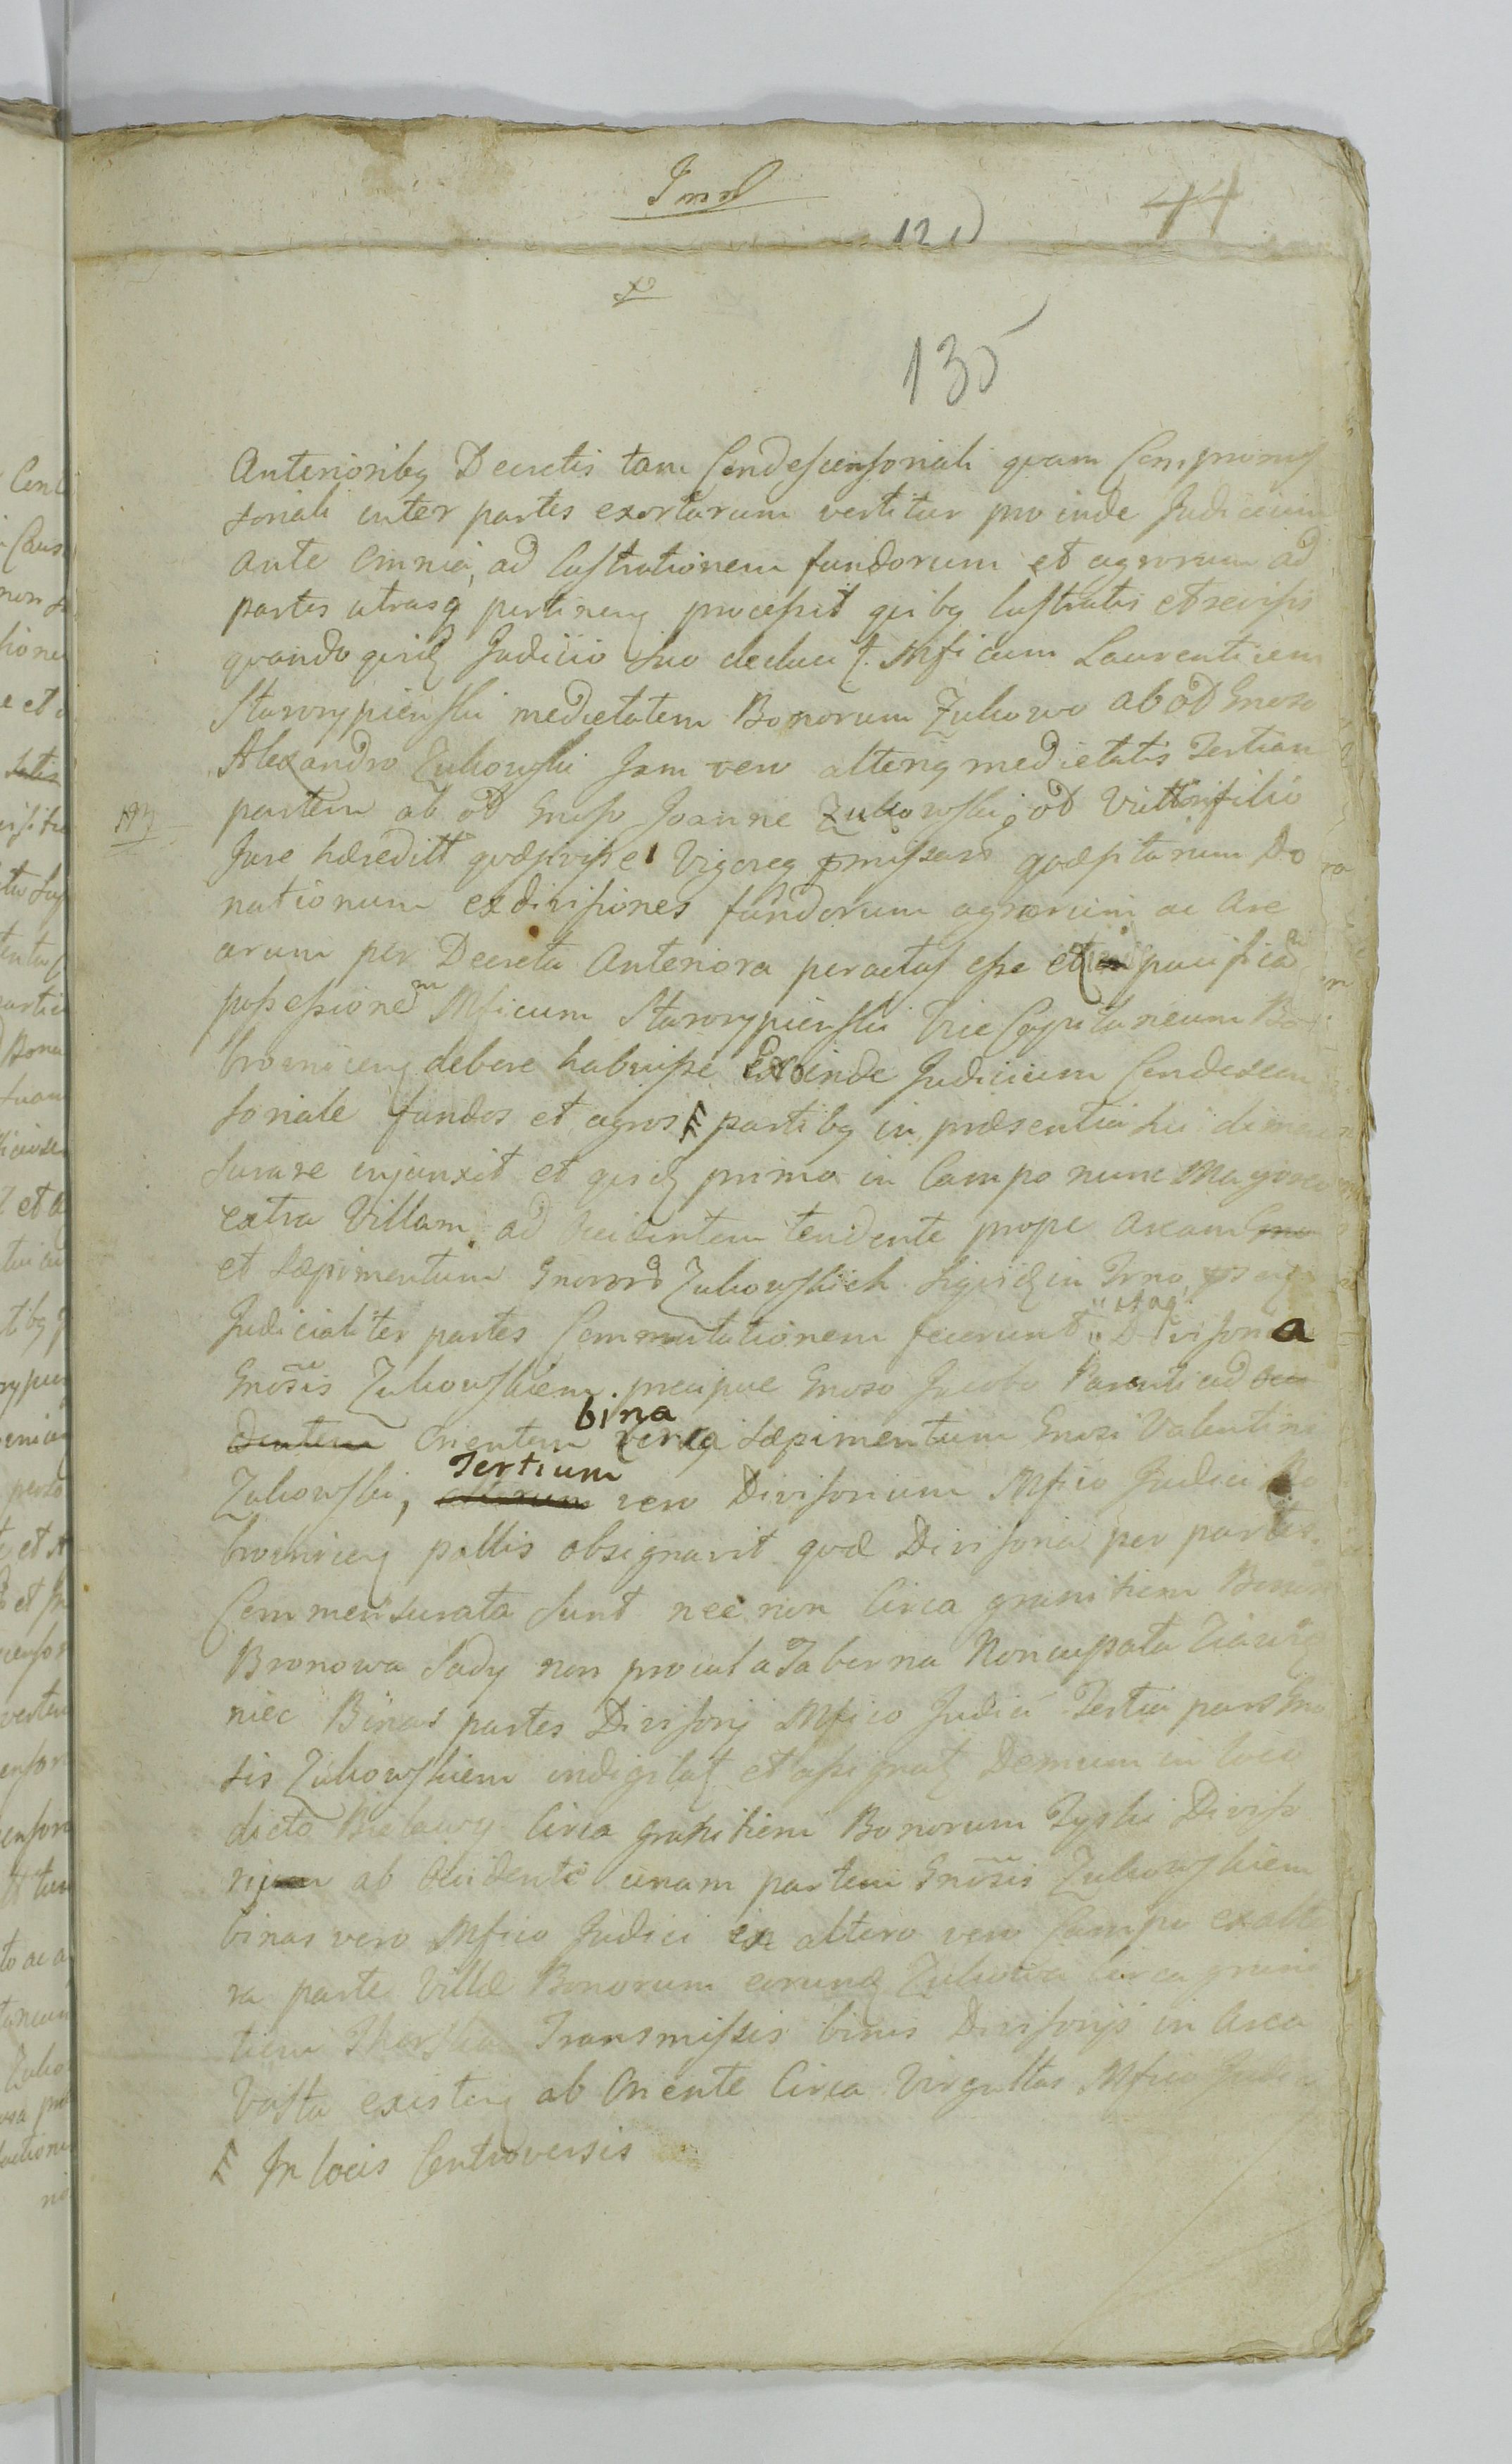 44
12
135
Anterioribq Decretis tam Condescensoriali quam Compromis
soriali inter partes exortarum vertitur pro inde Judicium
ante omnia, ad lustrationem fundorum et agrorum ad
partes utrasq pertineng processit quibq lustratis et revisis
quando quid Judicio suo deduci Mficum Laurentium
Starorypienski medietatem Bonorum Zukowo ab od Gnoso
Alexandro Zukowski Jam vero alterig medietatis Tertiam
partem ab od Gnoso Joanne Zukowski od Vict filio
Jure hæreditt quæsivisse Vigoreq pmissaro quæsitarum Do
nationum exdivisiones fundorum agrorum ac Are
arum per Decreta Anteriora peractas esse et pacificam
possessionem Mficum Starorypienski Vice Capitaneum Bo
browniceng debere habuisse Exoinde Judicium Condescen
soriale fundos et agros partibq in præsentia sui dimen
surare injunxit et quid primo in Campo nunc Magores
extra Villam ad Occidentem tendente prope aream
et sæpimentum Gnororo Zukowskich siquid in Trno
Judicialiter partes Commutationem fecerunt Divisoria
Gnosis Zukowskiem precipue Gnoso Jacobo Parenti ad
dentem Orientem bina circa sæpimentum Gnosi Valentini
Zukowski, Tertium vero Divisorium Mfico Judici Bo
browniceng pallis obsignavit quæ Divisoria per partes
Commensurata sunt nec non Circa granitiem Bonor
Bronowa Sady non procul a Taberna Noncupata
niec Binas partes Divisorij Mfico Judici Tertia pars Gno
sis Zukowskiem indigitat et assignat Demum in loco
dicto Bielawy Circa granitiem Bonorum Tyski Diviso
rij ab Occidente unam partem Gnosis Zukowskiem
binas vero Mfico Judici in altero vero Campo exalte
ra parte Villæ Bonorum eorund Zukowa Circa grani
tiem Transmissis binis Divisorijs in Area
Vasta existeng ab Oriente Circa Virgultas Mfico Judici
In locis Controversis